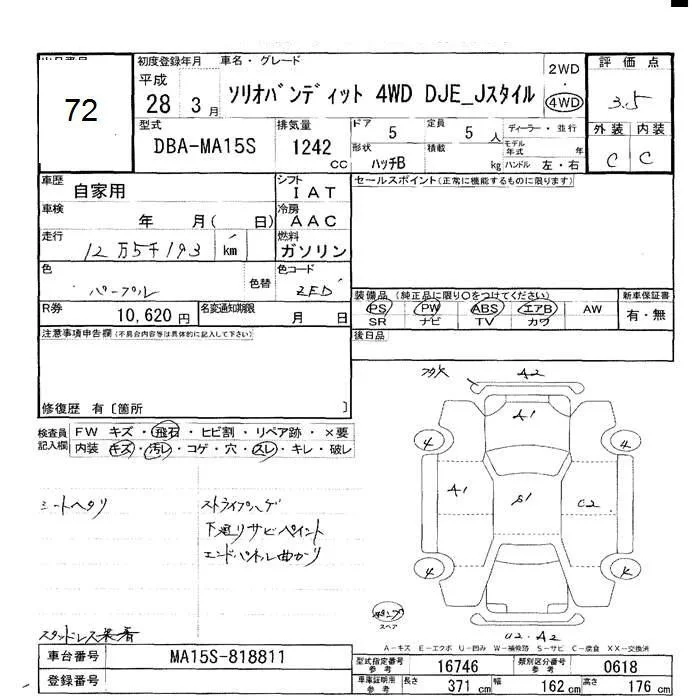 72
初度登録年月
平成
28 3月
車名・グレード
ソリオバンディット 4WD DJE_Jスタイル
2WD
4WD
評価点
3.5
外装 内装
C C
型式
DBA-MA15S
排気量
1242 CC
ドア 5
定員 5 人
ディーラー・並行
モデル年式 年
形状 ハッチB
積載 kg
ハンドル 左・右
車歴 自家用
シフト IAT
車検 年 月( 日)
冷房 AAC
走行 12万5千193 km
燃料 ガソリン
色 パープル 色替
色コード ZED
R券 10,620円
名変通知期限 月 日
セールスポイント(正常に機能するものに限ります)
装備品(純正品に限り○をつけてください)
PS PW ABS エアB AW
SR ナビ TV カワ
新車保証書
有・無
後日品
注意事項申告欄(不具合内容等は具体的に記入して下さい)
修復歴 有〔箇所 〕
検査員記入欄
FW キズ・飛石・ヒビ割・リペア跡・×要
内装 キズ・汚レ・コゲ・穴・スレ・キレ・破レ
シートヘタリ
ストライプハゲ
下廻りサビペイント
エンドパネル曲がり
スタッドレス装着
A2
A1
4 4
A1 S1 C2
4
U2.A2
スペア
A-キズ E-エクボ U-凹み W-補修跡 S-サビ C-腐食 XX-交換済
車台番号 MA15S-818811
登録番号
型式指定番号参考 16746
類別区分番号参考 0618
車庫証明用参考 長さ 371 cm 幅 162 cm 高さ 176 cm